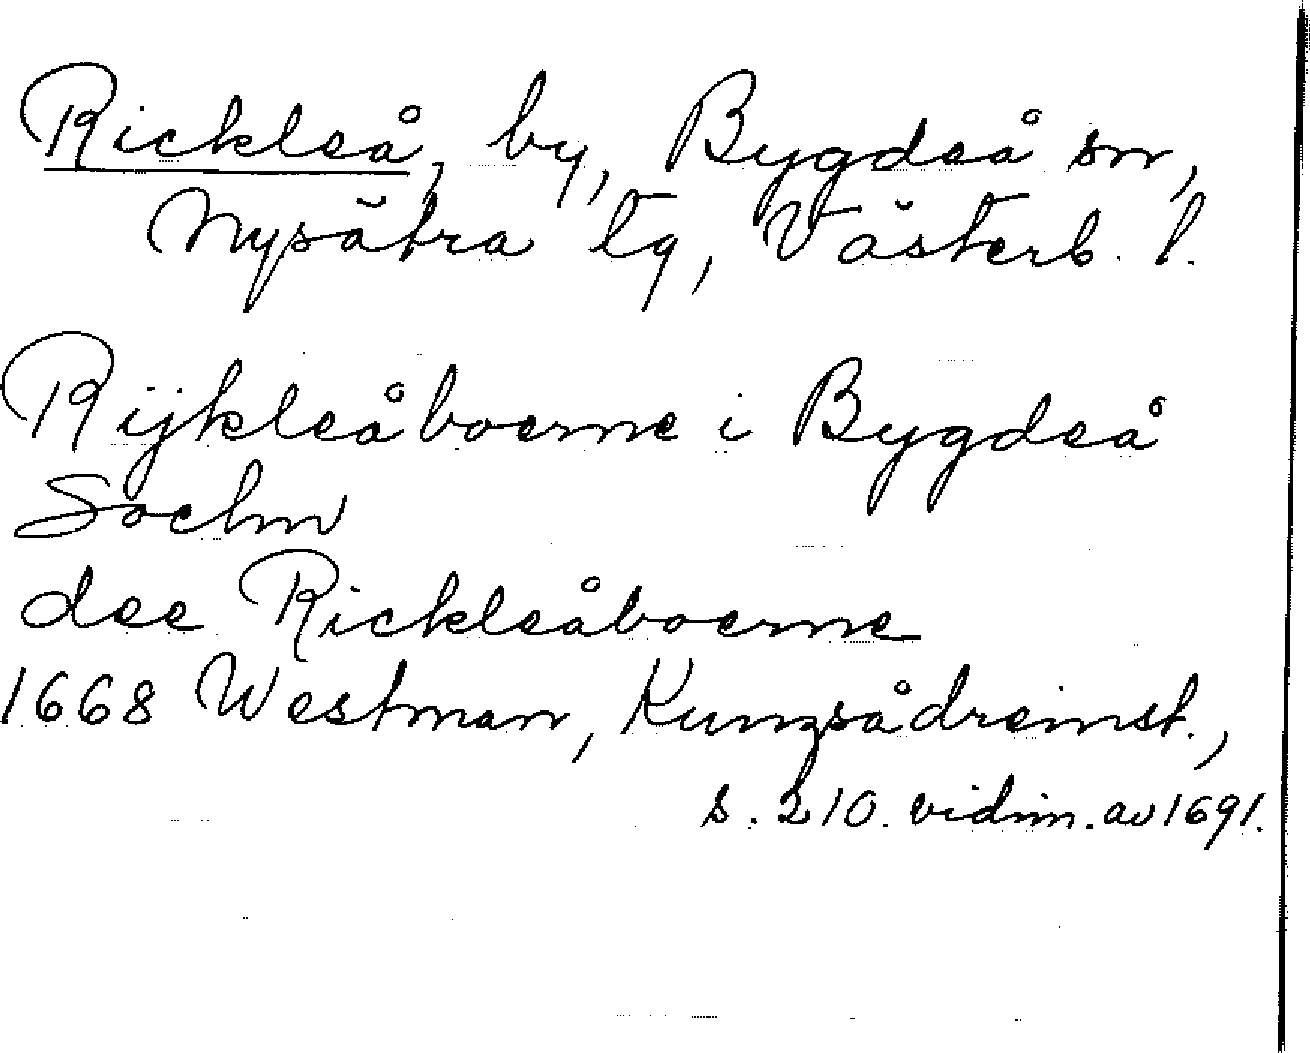 Rickleå, by, Bygdeå sn,
Nysätra tg, Västerb. l.
Rijkleåboerne i Bygdeå
Sochn
dee Rickleåboerne
1668 Westman, Kunzsådreinst.,
s. 210. vidim. av 1691.